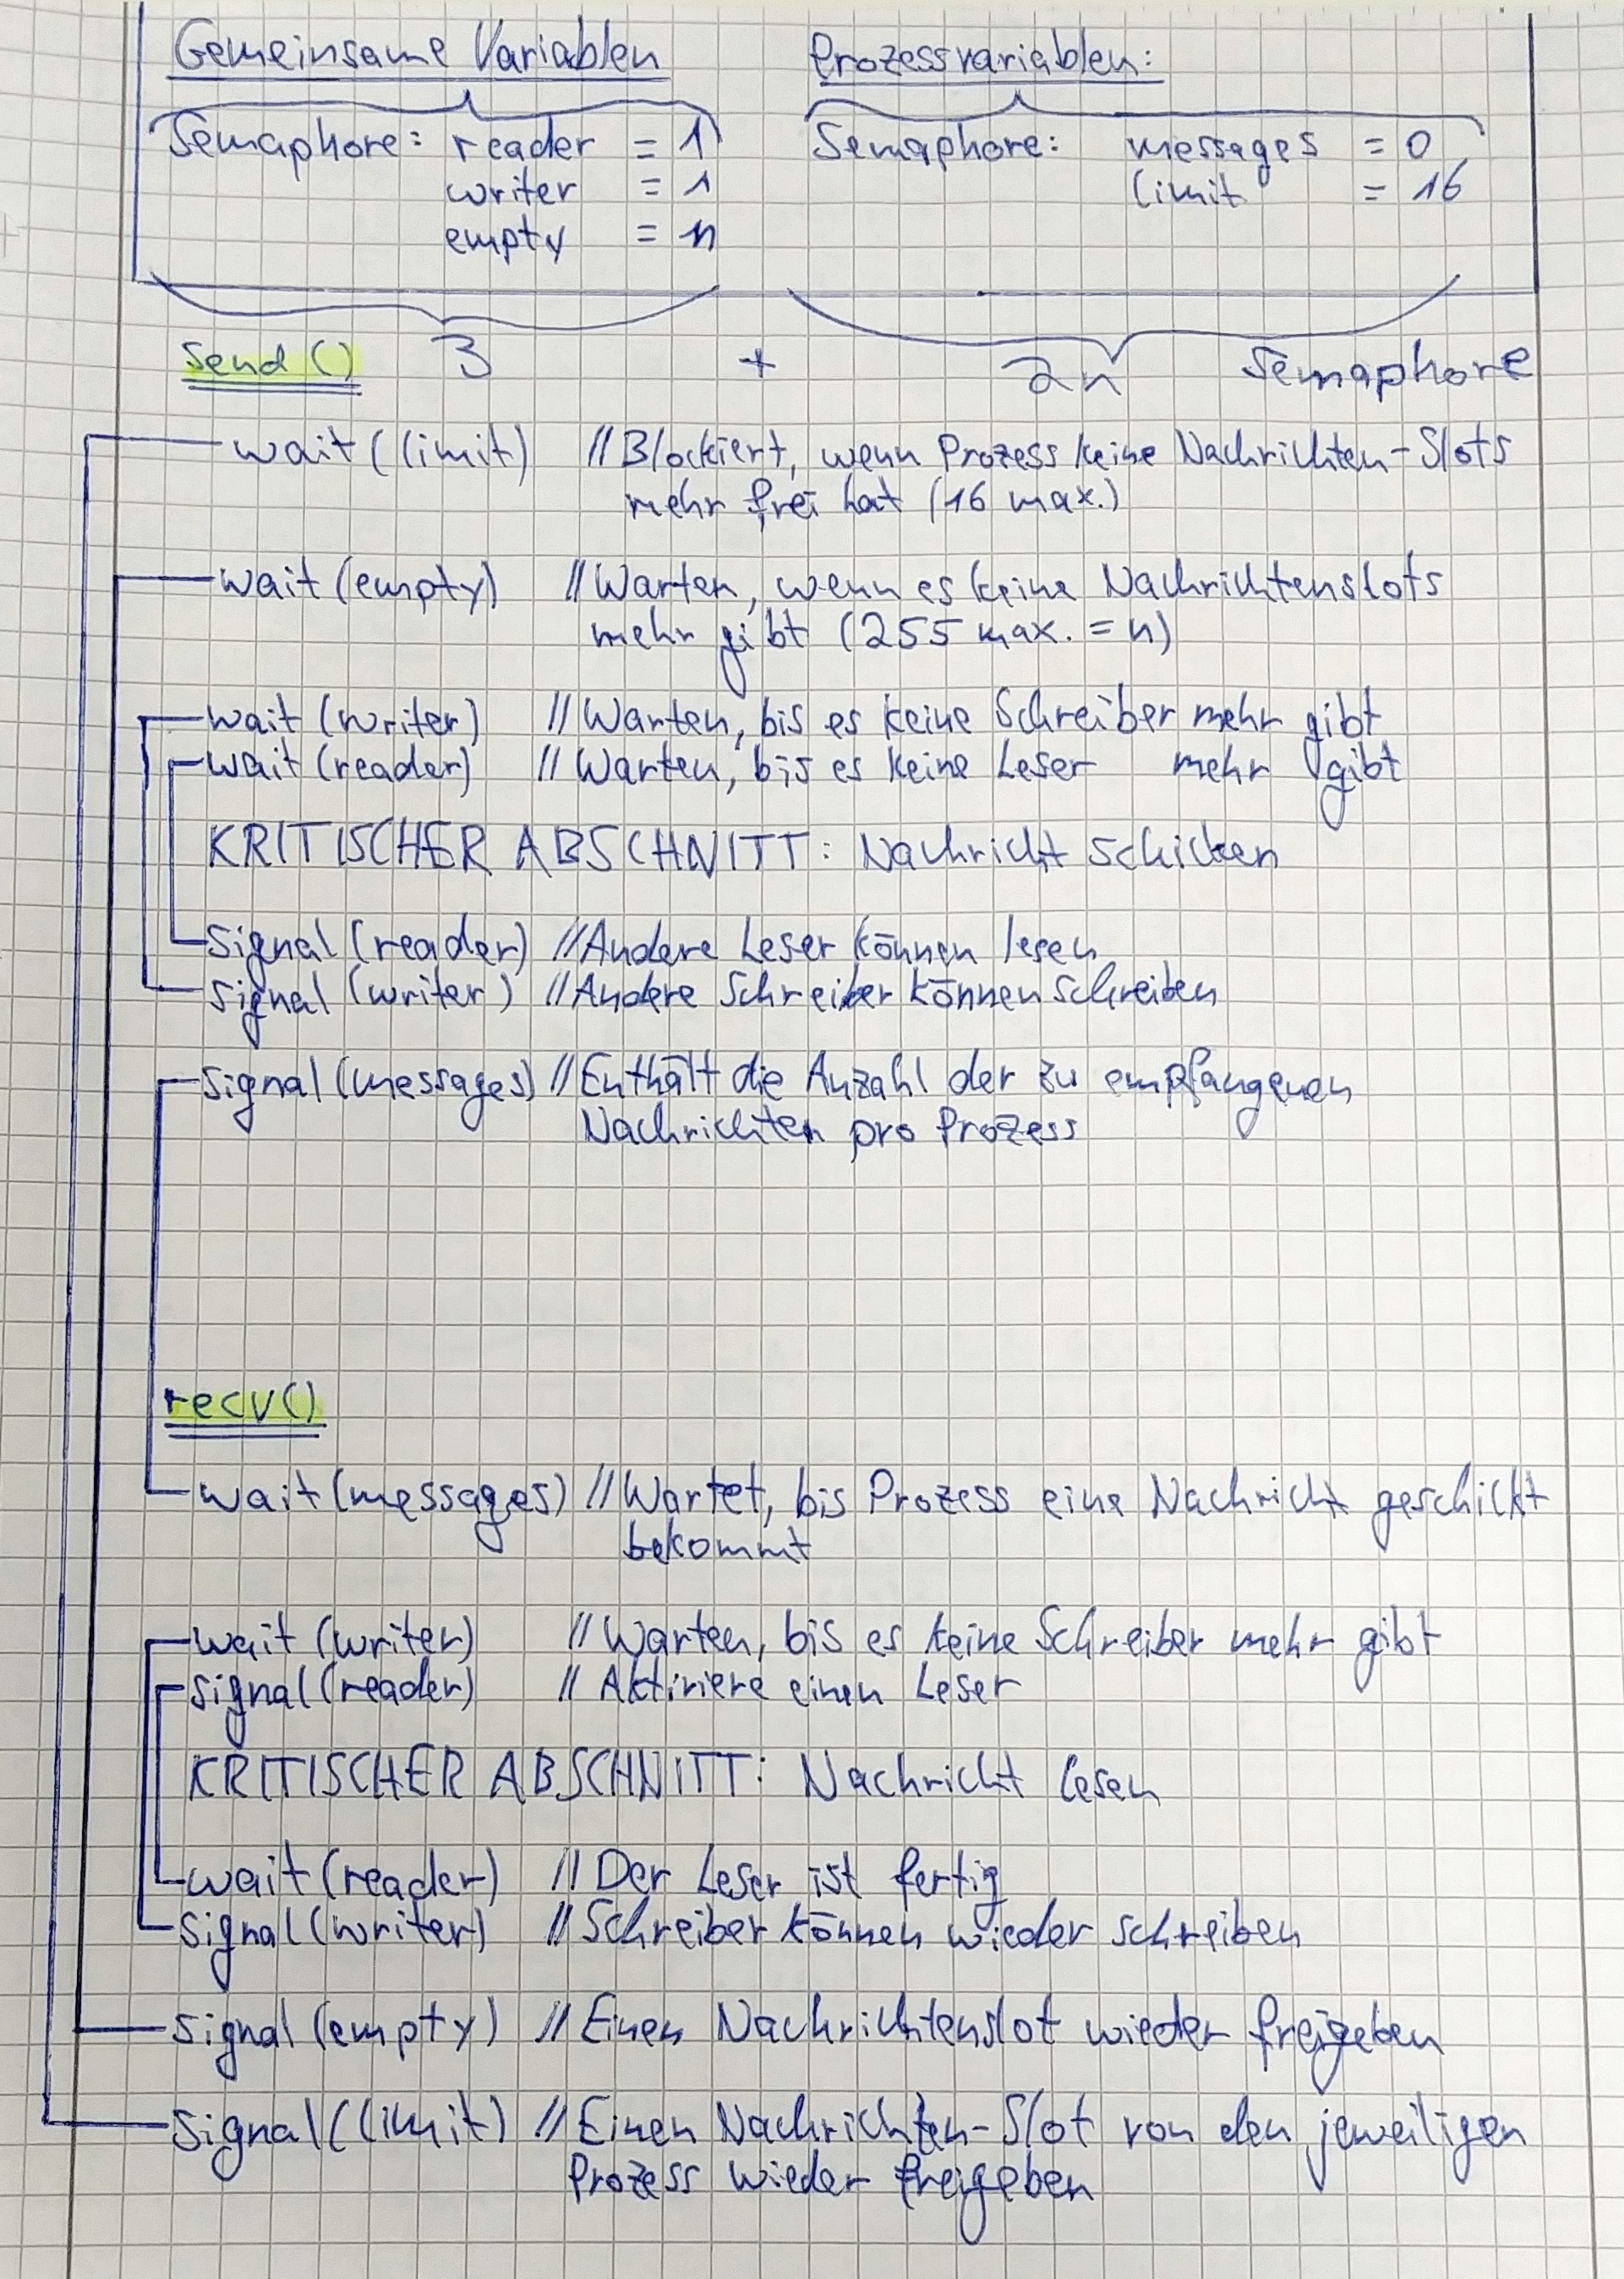 Gemeinsame Variablen Prozessvariablen:
Semaphore: reader = 1 Semaphore: messages = 0
writer = 1 limit = 16
empty = n
send() 3 + 2n Semaphore
wait(limit) // Blockiert, wenn Prozess keine Nachrichten-Slots
mehr frei hat (16 max.)
wait(empty) // Warten, wenn es keine Nachrichtenslots
mehr gibt (255 max. = n)
wait(writer) // Warten, bis es keine Schreiber mehr gibt
wait(reader) // Warten, bis es keine Leser mehr gibt
KRITISCHER ABSCHNITT: Nachricht schicken
signal(reader) // Andere Leser können lesen
signal(writer) // Andere Schreiber können schreiben
signal(messages) // Enthält die Anzahl der zu empfangenen
Nachrichten pro Prozess
recv()
wait(messages) // Wartet, bis Prozess eine Nachricht geschickt
bekommt
wait(writer) // Warten, bis es keine Schreiber mehr gibt
signal(reader) // Aktiviere einen Leser
KRITISCHER ABSCHNITT: Nachricht lesen
wait(reader) // Der Leser ist fertig
signal(writer) // Schreiber können wieder schreiben
signal(empty) // Einen Nachrichtenslot wieder freigeben
signal(limit) // Einen Nachrichten-Slot von den jeweiligen
Prozess wieder freigeben